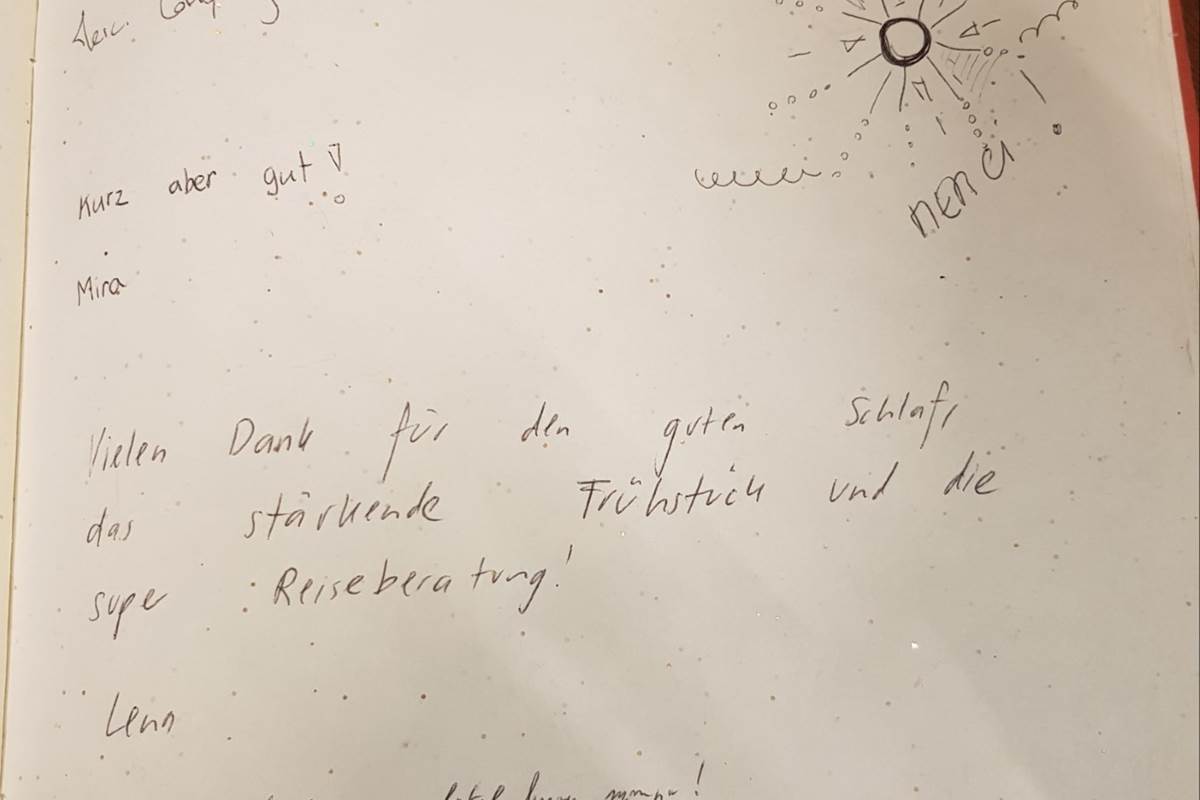 Kurz aber gut!
MERCI
Mira
Vielen Dank für den guten Schlaf,
das stärkende Frühstück und die
super Reiseberatung!
Lena